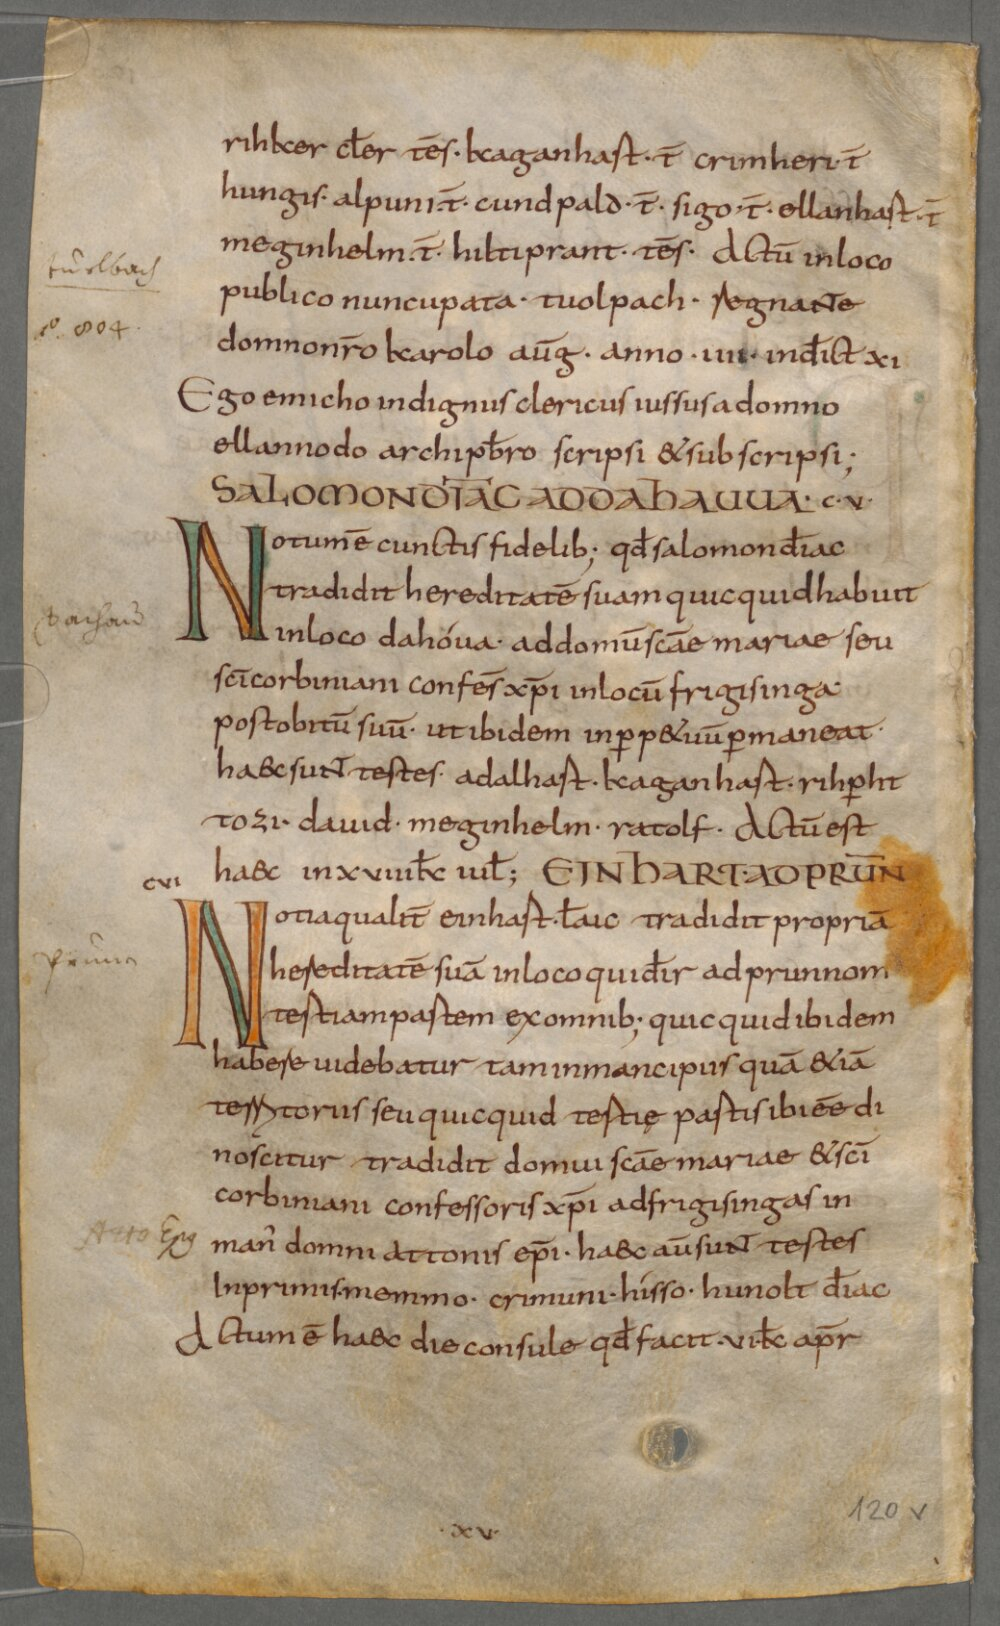 rihker cl̄er tēs· kaganhast· t̄ crimheri· t̄
hungis· alpuni· t̄· cundpald· t̄· sigo· t̄· ellanhast· t̄
meginhelm· t̄· hiltiprant· tēs· Actū inloco
tūlbach
publico nuncupata· tuolpach· regnante
aº. 804·
domno nr̄o karolo aūg· anno· iiii· ind̄ict xi
Ego emicho indignus clericus iussus a domno
ellannodo archipb̄ro scripsi &subscripsi;
SALOMON DĪAC AD DAHAUUA· c·v·
Notum ē cunctis fidelib; qd̄ salomon d̄iac
tradidit hereditatē suam quicquid habuit
dachau
inloco dahóuua· ad domū scāe mariae seu
sc̄i corbiniani confes̄ xp̄i inlocū frigisinga·
post obitū suū· ut ibidem inp̄p&uū p̄maneat·
haec sunt testes· adalhast· kaganhast· rihp̄ht
tozi· dauid· meginhelm· ratolf· Actū est
haec in xviiii k̄ iul̄; EINHART· AD PRUN̄
cvi
Notia qualit̄ einhast· l̄aic tradidit propriā
hereditatē suā inloco qui d̄ir ad prunnom
prunn
testiam pastem ex omnib; quicquid ibidem
habere uidebatur tam in mancipiis quā &iā
terrytoriis seu quicquid testię pastis ibi ēe di
noscitur tradidit domui scāe mariae &sc̄i
corbiniani confessoris xp̄i ad frigisingas in
Atto Epūs
man̄ domni attonis ep̄i· haec aū sunt testes
Inprimis· memmo· crimuni· hisso· hunolt d̄iac
Actum ē haec die consule qd̄ facit· vi· k̄ ap̄r
120 v
·xv·